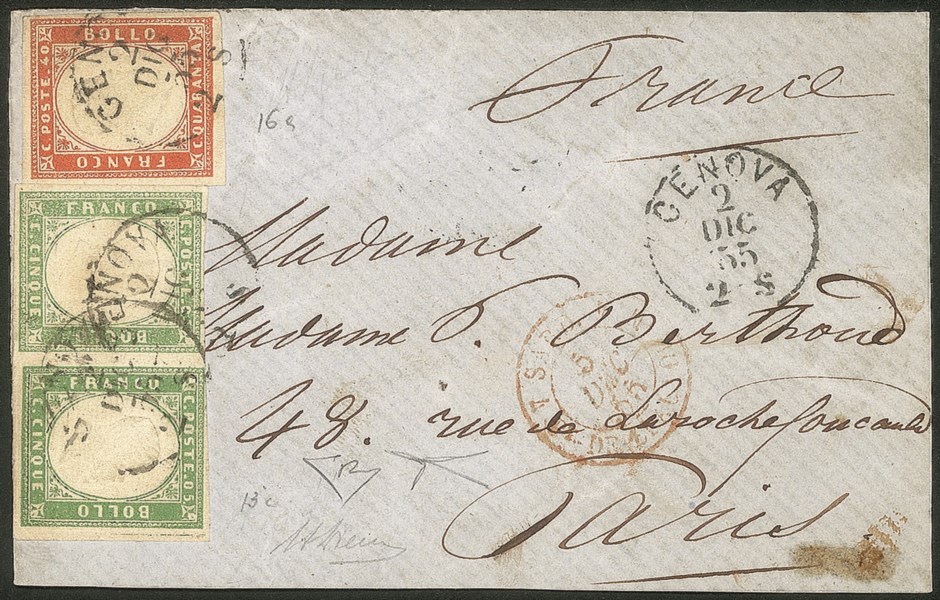 BOLLO
C. POSTE. 40
C. QUARANTA
FRANCO
GEN
2
DIC
16A
France
GENOVA
2
DIC
55
2 S
FRANCO
C. CINQUE
C. POSTE. 05
BOLLO
FRANCO
C. CINQUE
C. POSTE. 05
BOLLO
Madame
Madame P. Berthoud
48. rue de Larochefoucauld
Paris
5
DEC
13c